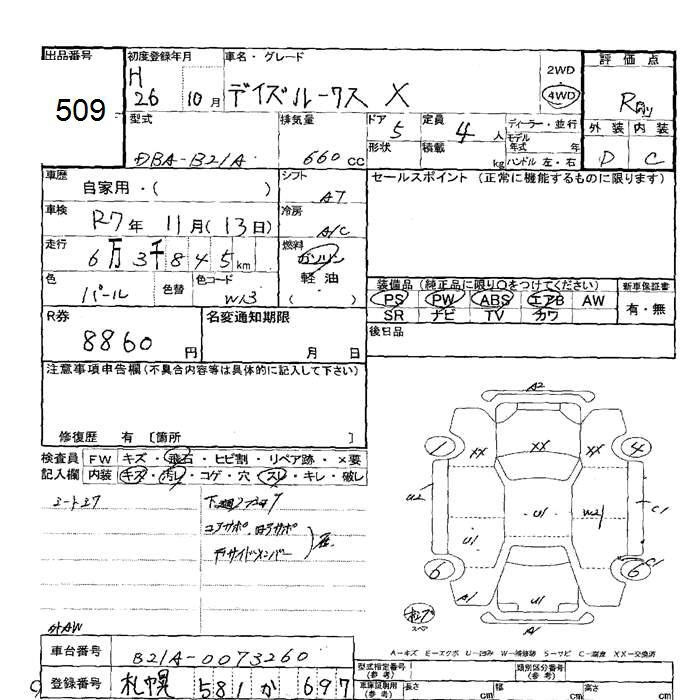 出品番号
509
初度登録年月
H
26 10 月
車名・グレード
デイズルークス X
2WD
4WD
評価点
R
型式
DBA-B21A
排気量
660 cc
ドア
5
形状
定員
4 人
積載
kg
ディーラー・並行
モデル
年式 年
ハンドル 左・右
外装 内装
D C
車歴
自家用・( )
シフト
AT
セールスポイント (正常に機能するものに限ります)
車検
R7年 11月(13日)
冷房
A/C
走行
6万3千845km
燃料
ガソリン
軽油
( )
色
パール
色替
色コード
W13
装備品(純正品に限り○をつけてください)
新車保証書
PS PW ABS エアB AW
SR ナビ TV カワ
有・無
R券
8860 円
名変通知期限
月 日
後日品
注意事項申告欄(不具合内容等は具体的に記入して下さい)
修復歴 有 〔箇所 〕
検査員
記入欄
FW キズ・飛石・ヒビ割・リペア跡・×要
内装 キズ・汚レ・コゲ・穴・スレ・キレ・破レ
コアサポ
サイドメンバー
外AW
A2
1 XX XX XX 4
U2 U1 U1 W2 C1
6 A1 U1 C1 6
スペア
A
A-キズ E-エクボ U-凹み W-補修跡 S-サビ C-腐食 XX-交換済
車台番号
B21A-0073260
登録番号
札幌 581 か 697
型式指定番号
(参考)
類別区分番号
(参考)
車庫証明用
(参考)
長さ cm
幅 cm
高さ cm